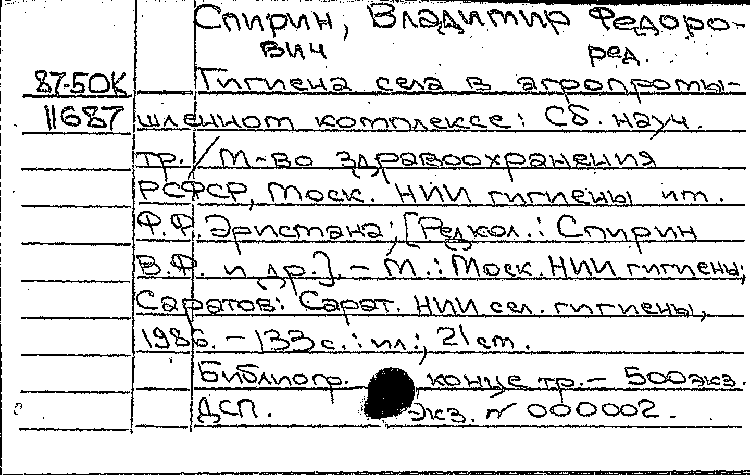 Спирин, Владимир Федоро-
вич ред.
87-50К Гигиена села в агропромы-
11687 шленном комплексе: Сб. науч.
тр. / М-во здравоохранения
РСФСР, Моск. НИИ гигиены им.
Ф.Ф. Эрисмана; [Редкол.: Спирин
В.Ф. и др.]. - М.: Моск. НИИ гигиены;
Саратов: Сарат. НИИ сел. гигиены,
1986. - 133 с.: ил.; 21 см.
Библиогр. конце тр. - 500 экз.
ДСП. Экз. № 000002.